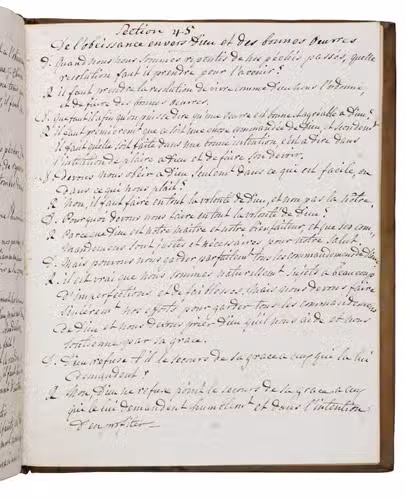 Section 45
De l'obéissance envers Dieu et des bonnes Oeuvres
D. Quand nous nous sommes repentis de nos péchés passés, quelle
resolution faut il prendre pour l'avenir?
R. il faut prendre la resolution de vivre comme Dieu nous l'ordonne
et de faire des bonnes oeuvres.
D. Que faut il afin qu'on puisse dire qu'une oeuvre est bonne et agreable a Dieu?
R. il faut premierement que ce soit une oeuvre commandée de Dieu, et
il faut quelle soit faite dans une bonne intention c'est a dire dans
l'intention de plaire a Dieu et de faire son devoir.
D. Devons nous obeir a Dieu seulement dans ce qui est facile ou
dans ce qui nous plait?
R. Non, il faut faire en tout la volonté de Dieu, et non pas la nôtre.
D. Pourquoi devons nous faire en tout la volonté de Dieu?
R. Parce que Dieu est notre maitre et notre bienfaiteur, et que ses com-
mandemens sont justes et nécessaires pour notre salut.
D. Mais pouvons nous garder parfaitement tous les commandemens de Dieu
R. il est vrai que nous sommes naturellement sujets a beaucoup
D'imperfections et de faiblesses, mais nous devons faire
sincerement nos efforts pour garder tous les commandemens
de Dieu et nous devons prier Dieu qu'il nous aide et nous
soutienne par sa grace.
D. Dieu refuse t'il le secours de sa grace a ceux qui la lui
demandent?
R. Non, Dieu ne refuse point le secours de sa grace a ceux
qui le lui demandent humblement et dans l'intention
D'en profiter